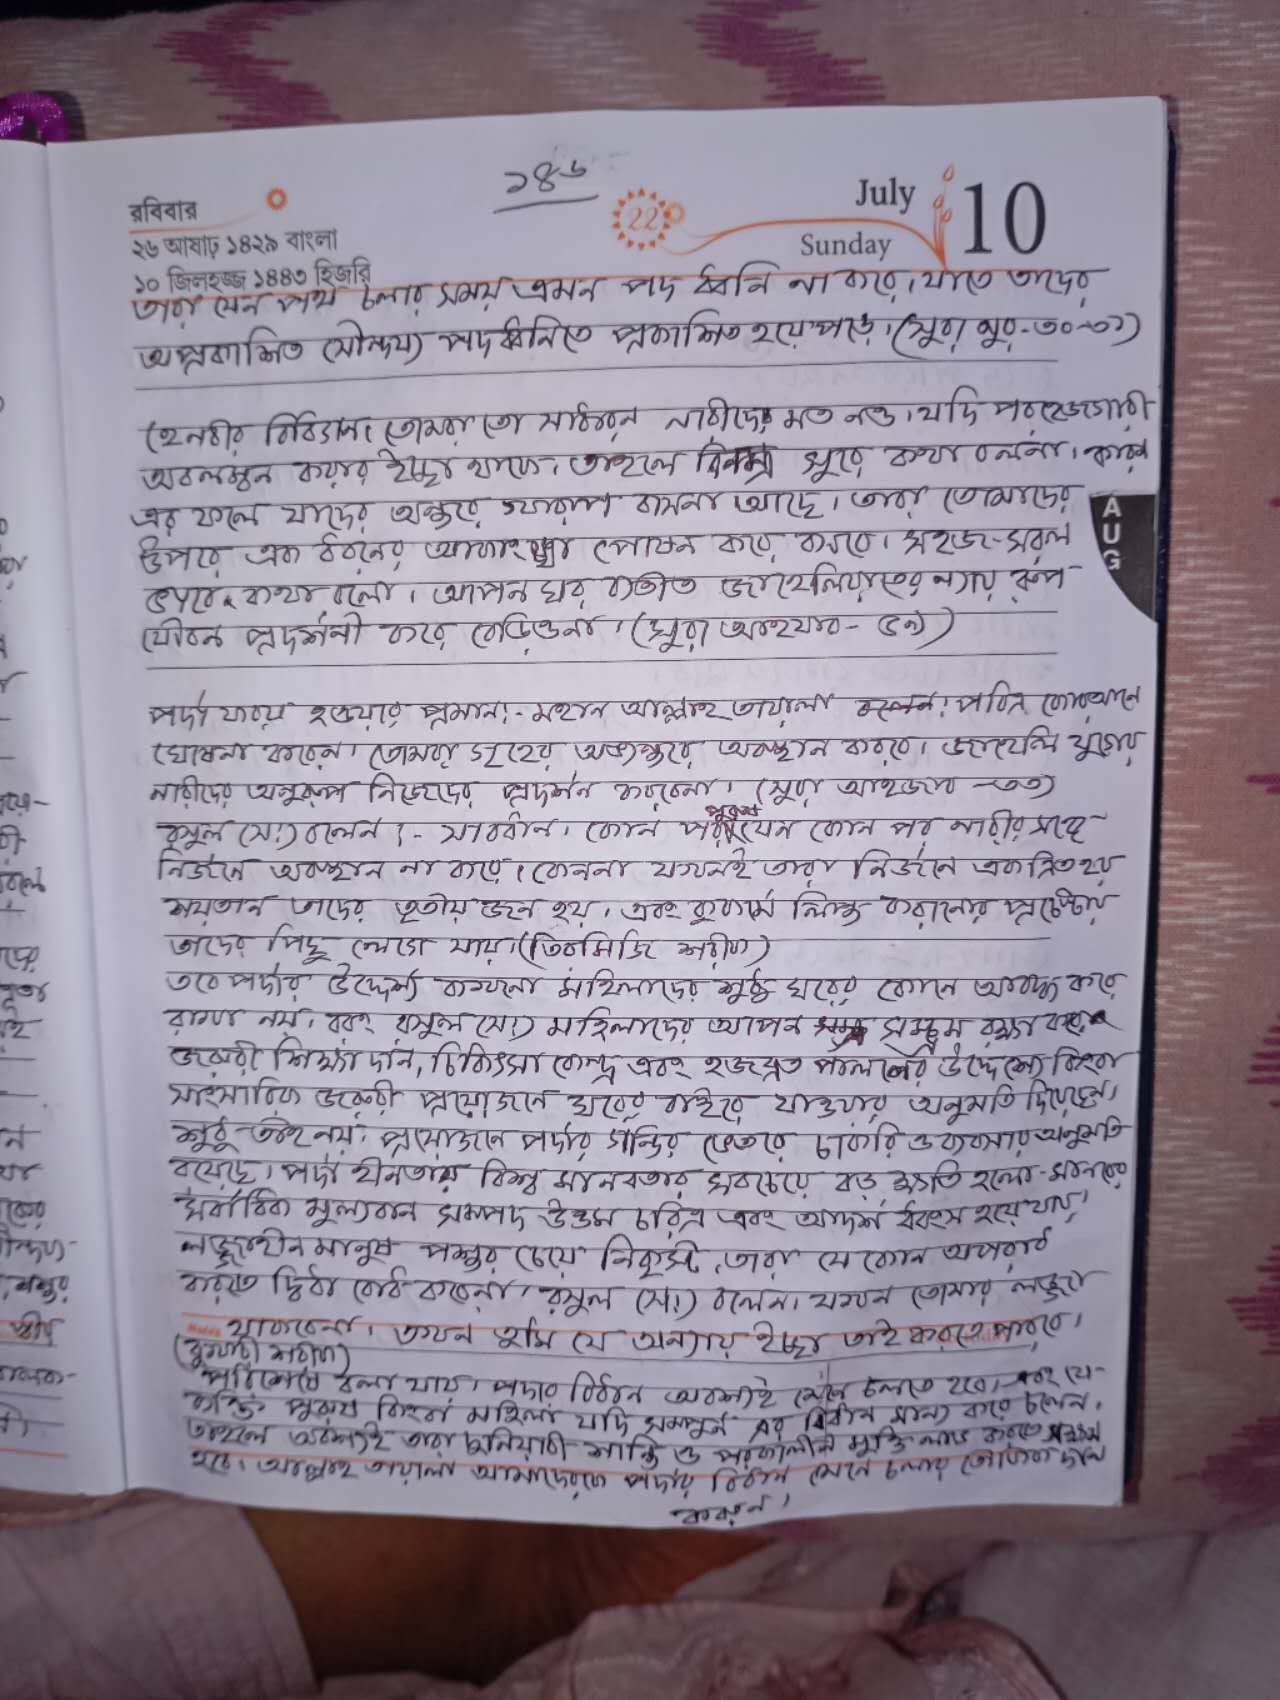 ১৪৬
রবিবার
২৬ আষাঢ় ১৪২৯ বাংলা
১০ জিলহজ্জ ১৪৪৩ হিজরি
22
July
Sunday
10
তারা যেন পথ চলার সময় এমন পদ ধ্বনি না করে। যাতে তাদের
অপ্রকাশিত সৌন্দর্য পদধ্বনিতে প্রকাশিত হয়ে পড়ে। (সুরা নুর-৩০-৩১)
হে নবীর বিবিগন। তোমরা তো সাধারন নারীদের মত নও। যদি পরহেজগারী
অবলম্বন করার ইচ্ছা থাকে। তাহলে বিনম্র সুরে কথা বলনা। কারন
এর ফলে যাদের অন্তরে খারাপ বাসনা আছে। তারা তোমাদের
উপরে এক ধরনের আকাংখ্যা পোষন করে বসবে। সহজ-সরল
ভাবে কথা বলো। আপন ঘর ব্যতীত জাহেলিয়াতের ন্যায় রুপ-
যৌবন প্রদর্শনী করে বেড়িওনা। (সুরা আহযাব-
AUG
পর্দা ফরয হওয়ার প্রমান:- মহান আল্লাহ তায়ালা বলেন: পবিত্র কোরআনে
ঘোষনা করেন। তোমরা গৃহের অভ্যন্তরে অবস্থান করবে। জাহেলি যুগের
নারীদের অনুরুপ নিজেদের প্রদর্শন করবেনা। (সুরা আহজাব-৩৩)
রসুল (স:) বলেন:- সাবধান। কোন পর পুরুষ যেন কোন পর নারীর সঙ্গে
নির্জনে অবস্থান না করে। কেননা যখনই তারা নির্জনে একত্রিত হয়
শয়তান তাদের তৃতীয় জন হয়। এবং কুকর্মে লিপ্ত করানোর প্রচেষ্টায়
তাদের পিছু লেগে যায়। (তিরমিজি শরীফ)
তবে পর্দার উদ্দেশ্য কখনো মহিলাদের শুধু ঘরের কোনে আবদ্ধ করে
রাখা নয়। বরং রসুল (স:) মহিলাদের আপন সম্ভ্রম রক্ষা করে
জরুরী শিক্ষা দান, চিকিৎসা কেন্দ্র এবং হজব্রত পালনের উদ্দেশ্যে কিংবা
সাংসারিক জরুরী প্রয়োজনে ঘরের বাইরে যাওয়ার অনুমতি দিয়েছেন।
শুধু তাই নয়। প্রয়োজনে পর্দার গন্ডির ভেতরে চাকরি ও ব্যবসার অনুমতি
রয়েছে। পর্দা হীনতায় বিশ্ব মানবতার সবচেয়ে বড় ক্ষতি হলো-মানবের
সর্বাধিক মুল্যবান সম্পদ উত্তম চরিত্র এবং আদর্শ ধ্বংস হয়ে যায়।
লজ্জাহীন মানুষ পশুর চেয়ে নিকৃষ্ট, তারা যে কোন অপরাধ
করতে দ্বিধা বোধ করেনা। রসুল (স:) বলেন। যখন তোমার লজ্জা
থাকবেনা। তখন তুমি যে অন্যায় ইচ্ছা তাই করতে পারবে।
(বুখারী শরীফ)
পরিশেষে বলা যায়। পর্দার বিধান অবশ্যই মেনে চলতে হবে। এবং যে-
ব্যক্তি পুরুষ কিংবা মহিলা যদি সম্পুর্ন এর বিধান মান্য করে চলেন।
তাহলে অবশ্যই তারা দুনিয়াবী শান্তি ও পরকালীন মুক্তি লাভ করতে সক্ষম
হবে। আল্লাহ তায়ালা আমাদেরকে পর্দার বিধান মেনে চলার তৌফিক দান
করুন।